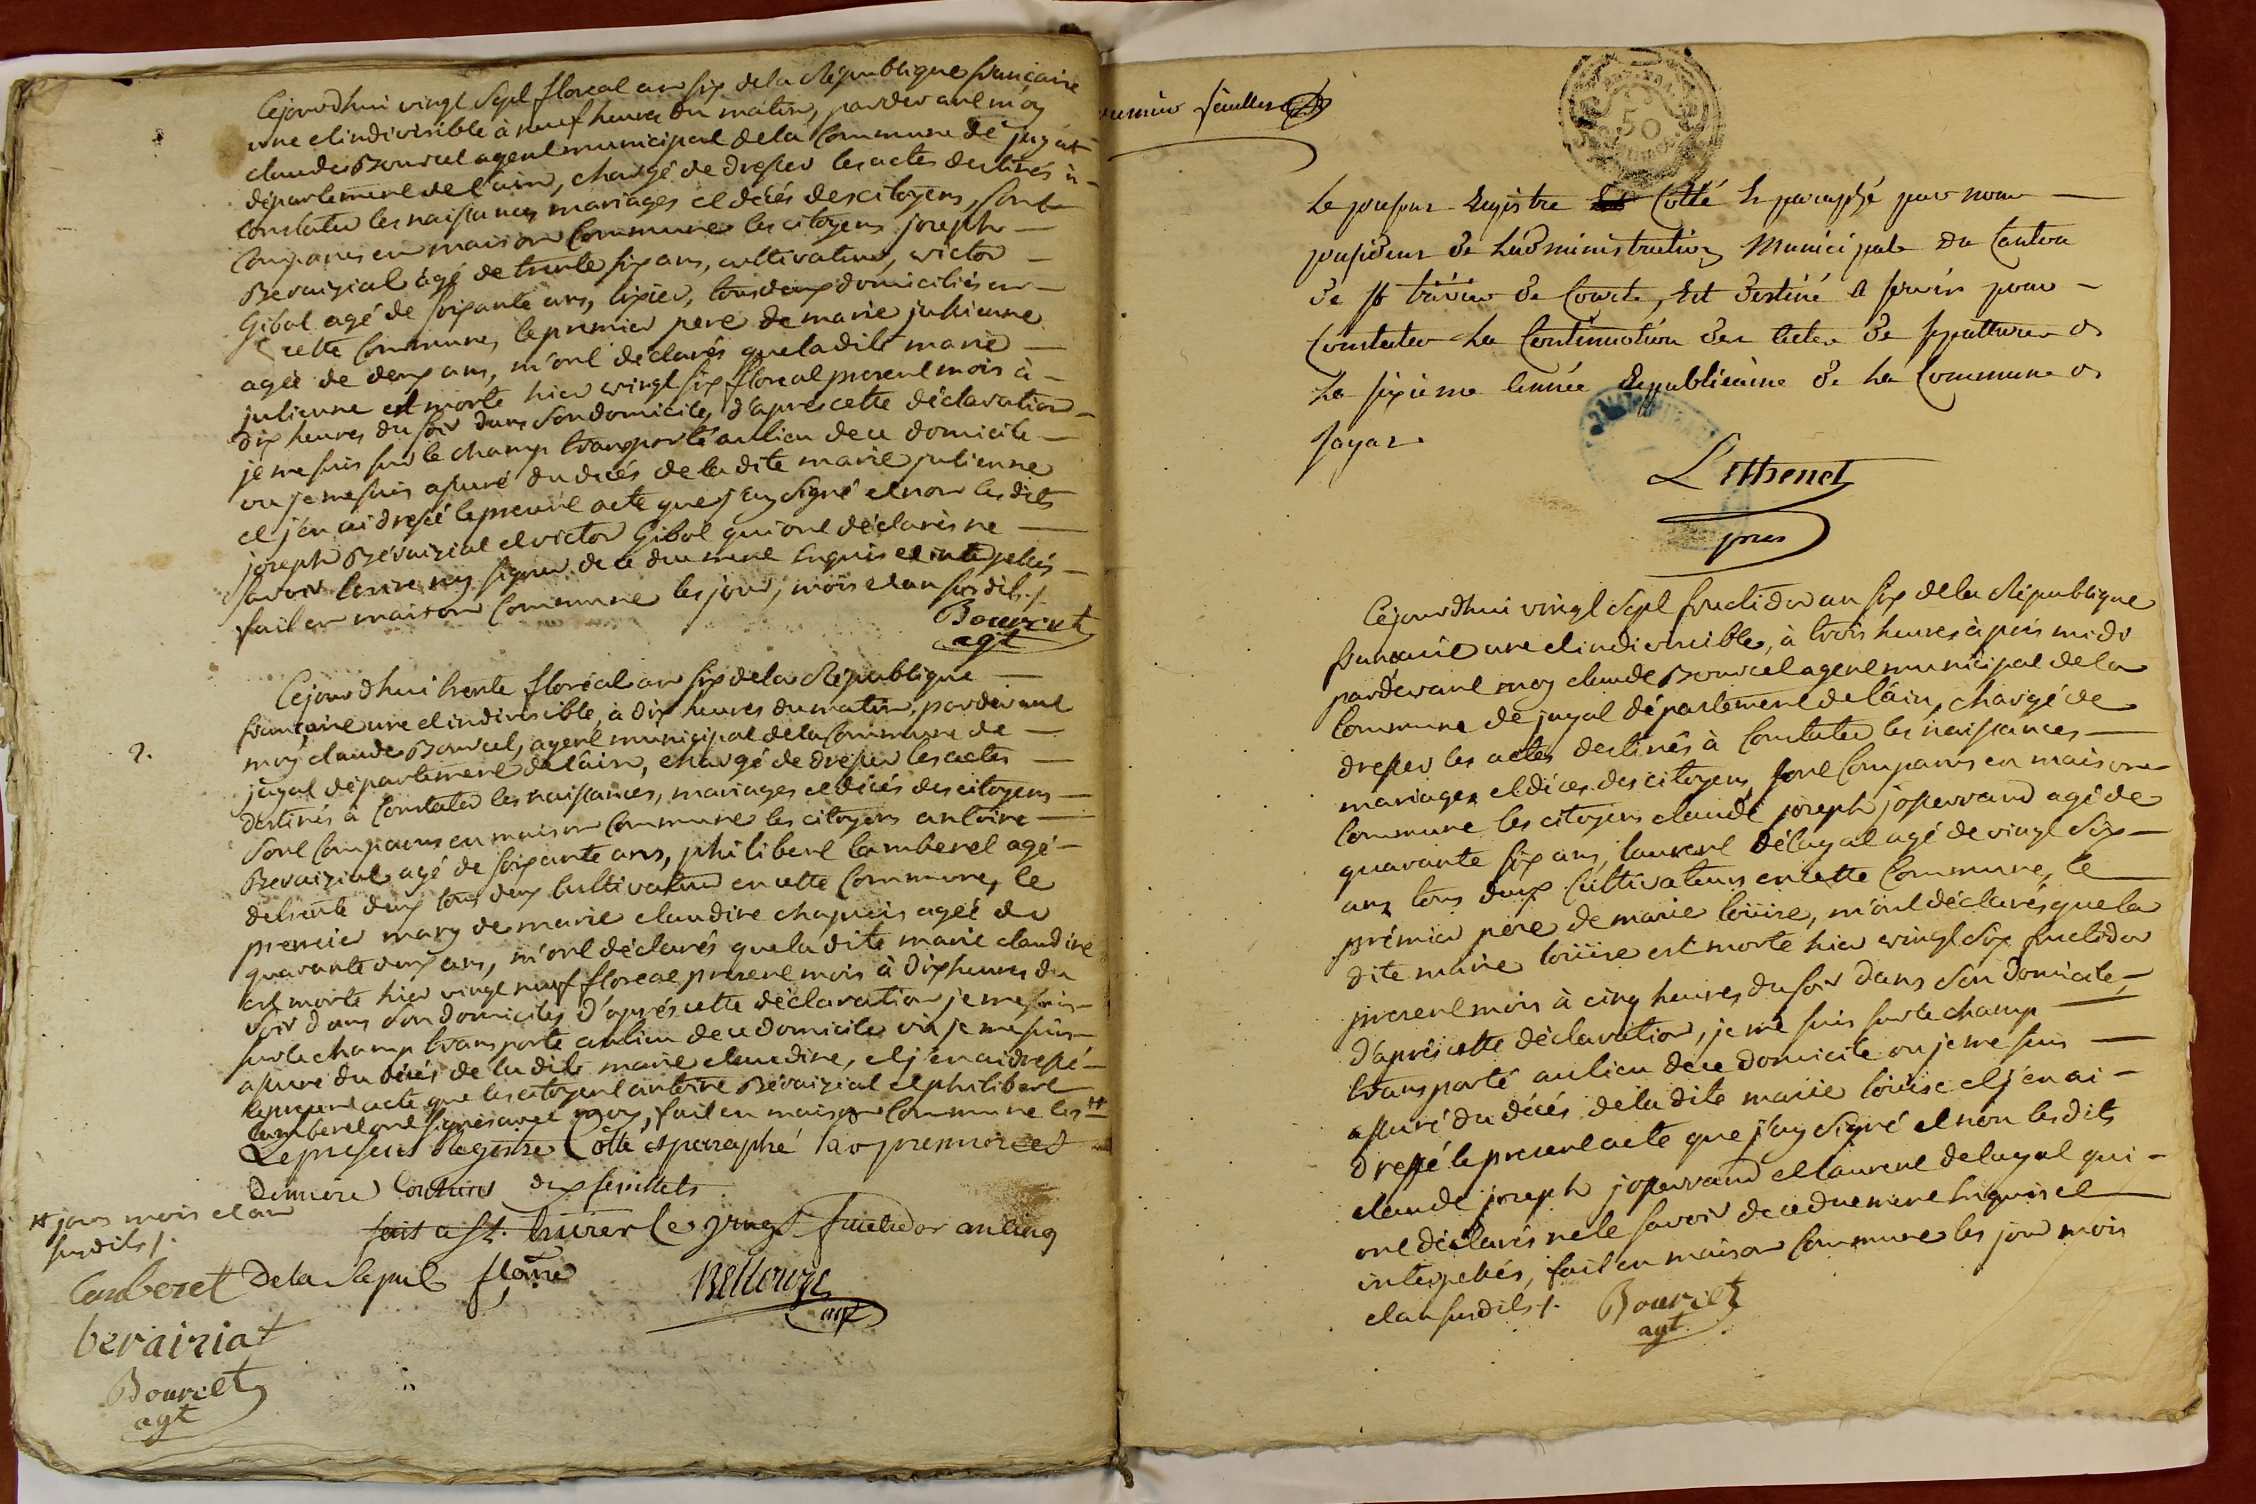 Cejourdhui vingt Sept floreal an six dela République francaise
une et indivisible à neuf heures du matin, pardevant moy
claude Bourcet agent municipal dela Commune de jayat
département de l'ain, chargé de dresser les actes destinés à
Constater les naissances mariages et décés des citoyens, sont
Comparus en maison Commune les citoyens joseph
Bevaiziat agé de trente six ans, cultivateur, victor
Gibol agé de soixante ans, tixier, tous deux domiciliés en
cette Commune, le premier pere de marie julienne
agée de deux ans, m'ont déclarés que ladite marie
julienne est morte hier vingt six floreal present mois à
dix heures du soir dans son domicile, d'après cette déclaration
je me suis sur le champ transporté au lieu de ce domicile
ou je me suis assuré du décés de la dite marie julienne
et j'en ai dressé le present acte que j'ay signé et non les dits
joseph Bévaiziat et victor Gibol qui ont déclarés ne
savoir Ecrire ny signer de ce duement Enquis et interpellés
fait en maison Commune les jour, mois et an susdits /.
Bourcet
agt
Cejourdhui trente floréal an six dela République
francaise une et indivisible, à dix heures du matin, pardevant
moy claude Bourcet, agent municipal dela Commune de
2.
jayat département de l'ain, chargé de dresser les actes
destinés à Constater les naissances, mariages et décés des citoyens
Sont Comparus en maison Commune les citoyens antoine
Bevaiziat agé de soixante ans, philibert lamberet agé
de trente deux tous deux Cultivateur en cette Commune, le
premier mary de marie claudine chapuis agée de
quarante deux ans, m'ont déclarés que la dite marie claudine
est morte hier vingt neuf floreal present mois à dix heures du
soir dans son domicile, d'après cette déclaration je me suis
sur le champ transporté au lieu de ce domicile où je me suis
assuré du décés de la dite marie claudine, et j'en ai dressé
le present acte que les citoyens antoine Bévaiziat et philibert
lamberet ont signés avec moy, fait en maison Commune les #
Le present Registre Côtté et parraphé par premier et
dernière Contient dix feuillets
# jours mois et an
susdits /.
fait a St. trivier le vingt fructidor an cinq
Lamberet De la Repub. f.caine
Bellouze
bevaiziat
Bourcet
agt
premier feuillet
50
Le present Registre Cotté Et paraphé par nous
president de L'administration Municipale du Canton
de St trivier de Courte, Est destiné a servir pour
Constater La Continuation des actes de sepulture de
La sixieme année Republicaine de La Commune de
Jayaz.
L'Ethenet
pres
Cejourdhui vingt Sept fructidor an six dela République
francaise une et indivisible, à trois heures après midi
pardevant moy claude Bourcet agent municipal dela
Commune de jayat département de l'ain, chargé de
dresser les actes destinés à Constater les naissances
mariages et décés des citoyens, sont Comparus en maison
Commune les citoyens claude joseph josserand agé de
quarante six ans, laurent délayat agé de vingt six
ans tous deux Cultivateurs en cette Commune, le
prémier pere de marie loüise, m'ont déclarés que la
dite marie loüise est morte hier vingt six fructidor
present mois à cinq heures du soir dans son domicile,
d'après cette déclaration, je me suis sur le champ
transporté au lieu de ce domicile ou je me suis
assuré du décés de la dite marie loüise et j'en ai
dressé le present acte que j'ay signé et non les dits
claude joseph josserand et laurent delayat qui
ont déclarés ne le savoir de ce duement Enquis et
interpellés, fait en maison Commune les jour mois
et an susdits /.
Bourcet
agt